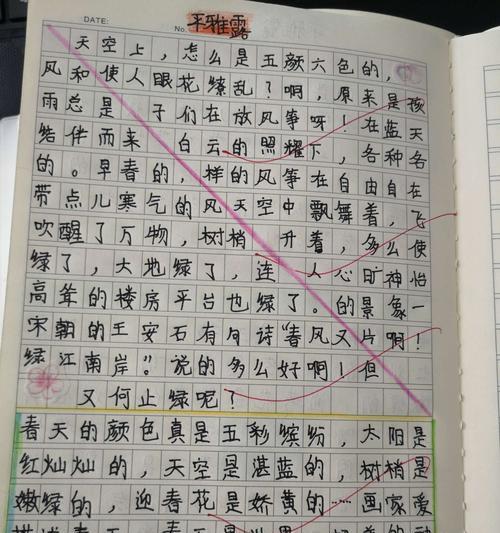 DATE:
No.
平雅露
天空上，怎么是五颜六色的，
风和使人眼花缭乱？啊，原来是孩
雨总是 子们在放风筝呀！在蓝天
结伴而来 白云的照耀下，各种各
的。早春的，样的风筝在自由自在
带点儿寒气的风天空中飘舞着，飞
吹醒了万物，树梢 升着，多么使
绿了，大地绿了，连 人心旷神怡
高耸的楼房平台也绿了。的景象一
宋朝的王安石有句诗“春风又片啊！
绿江南岸”。说的多么好啊！但
又何止绿呢？
春天的颜色真是五彩缤纷，太阳是
红灿灿的，天空是湛蓝的，树梢是
嫩绿的，迎春花是娇黄的……画家爱